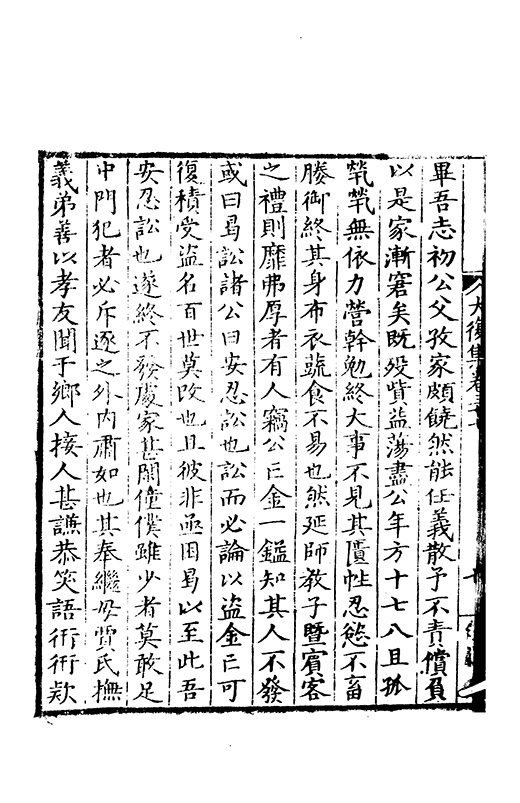 大復集卷三十
畢吾志初公父孜家頗饒然能任義散予不責償負
以是家漸窘矣既歿貲益蕩盡公年方十七八且孤
煢煢無依力營幹勉終大事不見其匱性忍慾不畜
媵御終其身布衣蔬食不易也然延師教子暨賓客
之禮則靡弗厚者有人竊公白金一鎰知其人不發
或曰曷訟諸公曰安忍訟也訟而必論以盜金亡可
復積受盜名百世莫改也且彼非亟困曷以至此吾
安忍訟也遂終不發處家甚閑僮僕雖少者莫敢足
中門犯者必斥逐之外内肅如也其奉繼母賈氏撫
義弟善以孝友聞于鄉人接人甚謙恭笑語衎衎款